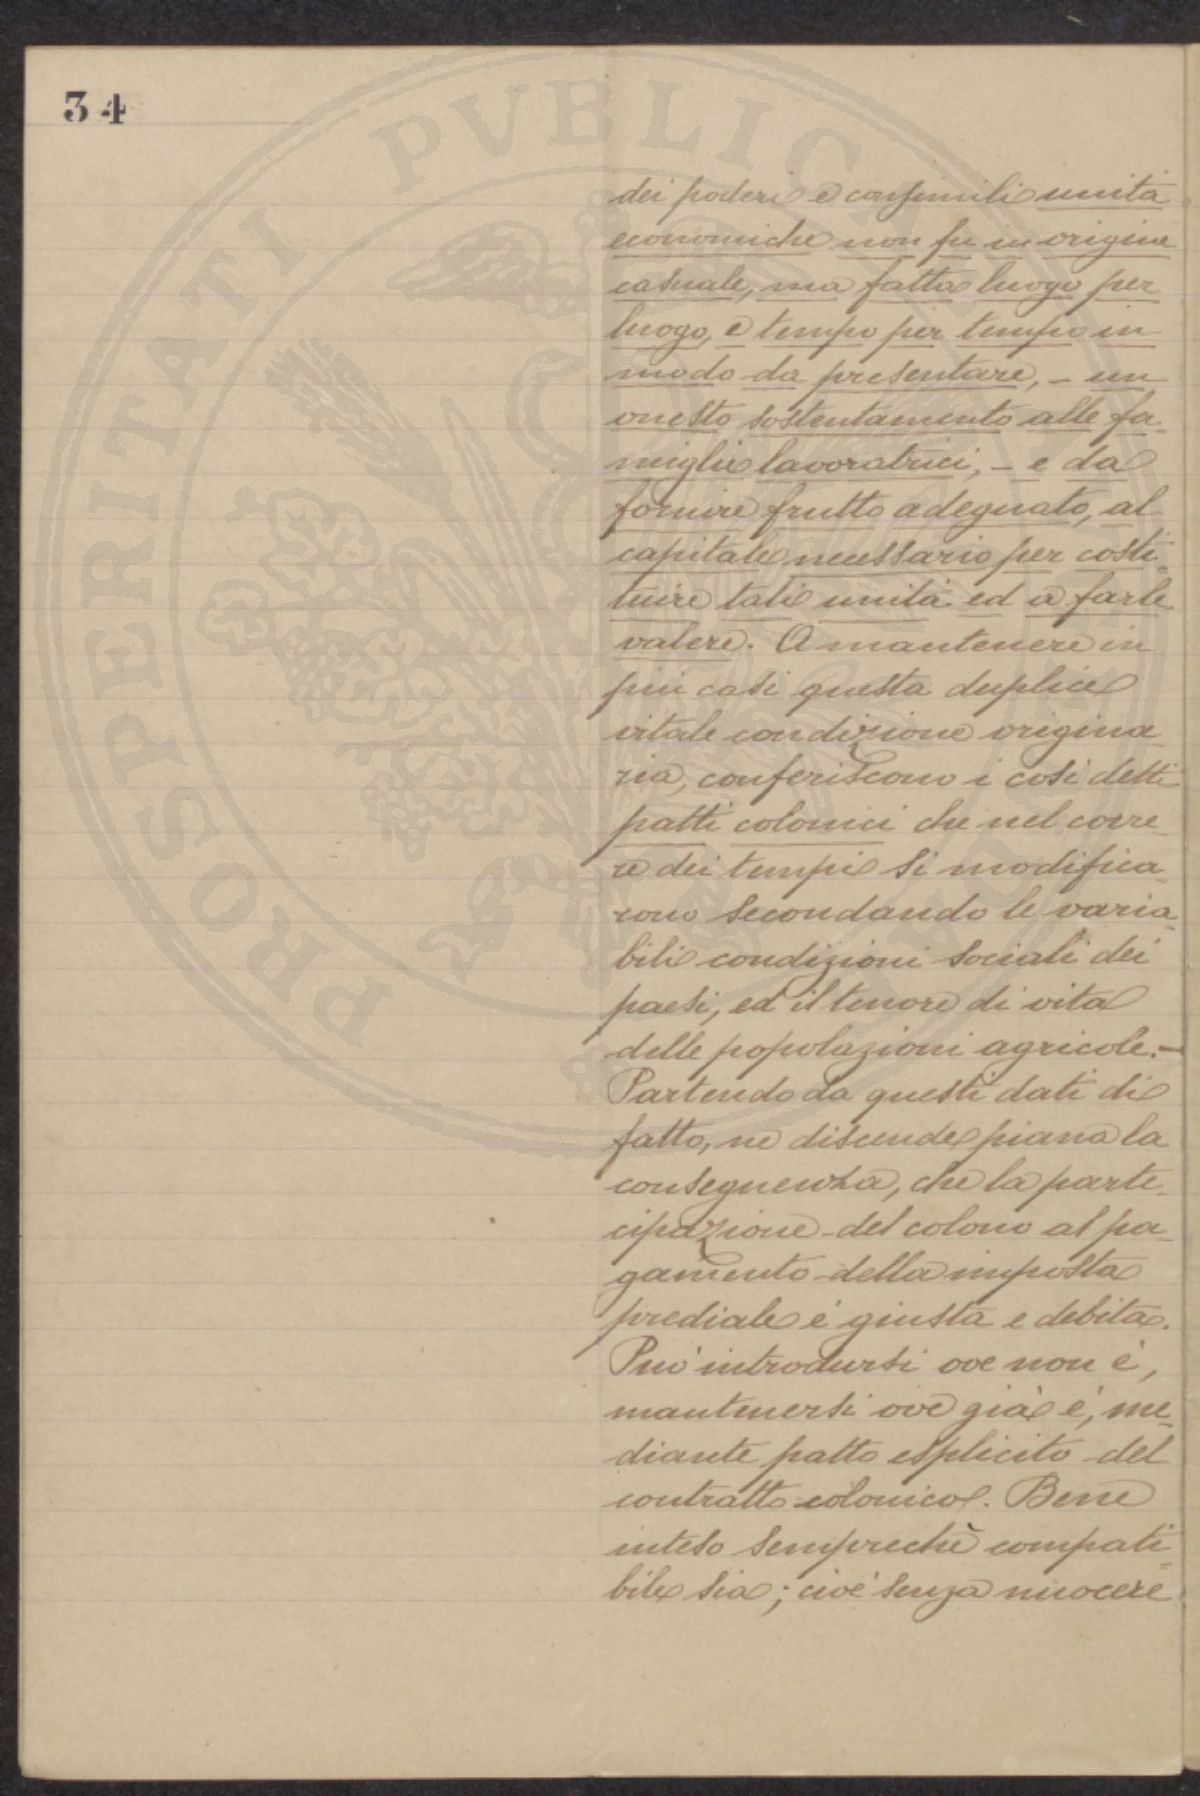 34
PROSPERITATI PVBLICAE
dei poderi e consimili unità
economiche non fu in origine
casuale, ma fatta luogo per
luogo, e tempo per tempo in
modo da presentare, – un
onesto sostentamento alle fa-
miglie lavoratrici, – e da
fornire frutto adeguato, al
capitale necessario per costi-
tuire tali unità ed a farle
valere. A mantenere in
più casi questa duplice
vitale condizione origina-
ria, conferiscono i così detti
patti colonici che nel corre-
re dei tempi si modifica-
rono secondando le varia-
bili condizioni sociali dei
paesi, ed il tenore di vita
delle popolazioni agricole. –
Partendo da questi dati di
fatto, ne discende piana la
conseguenza, che la parte-
cipazione del colono al pa-
gamento della imposta
prediale è giusta e debita.
Può introdursi ove non è,
mantenersi ove già è, me-
diante patto esplicito del
contratto colonico. Bene
inteso semprechè compati-
bile sia; cioè senza nuocere